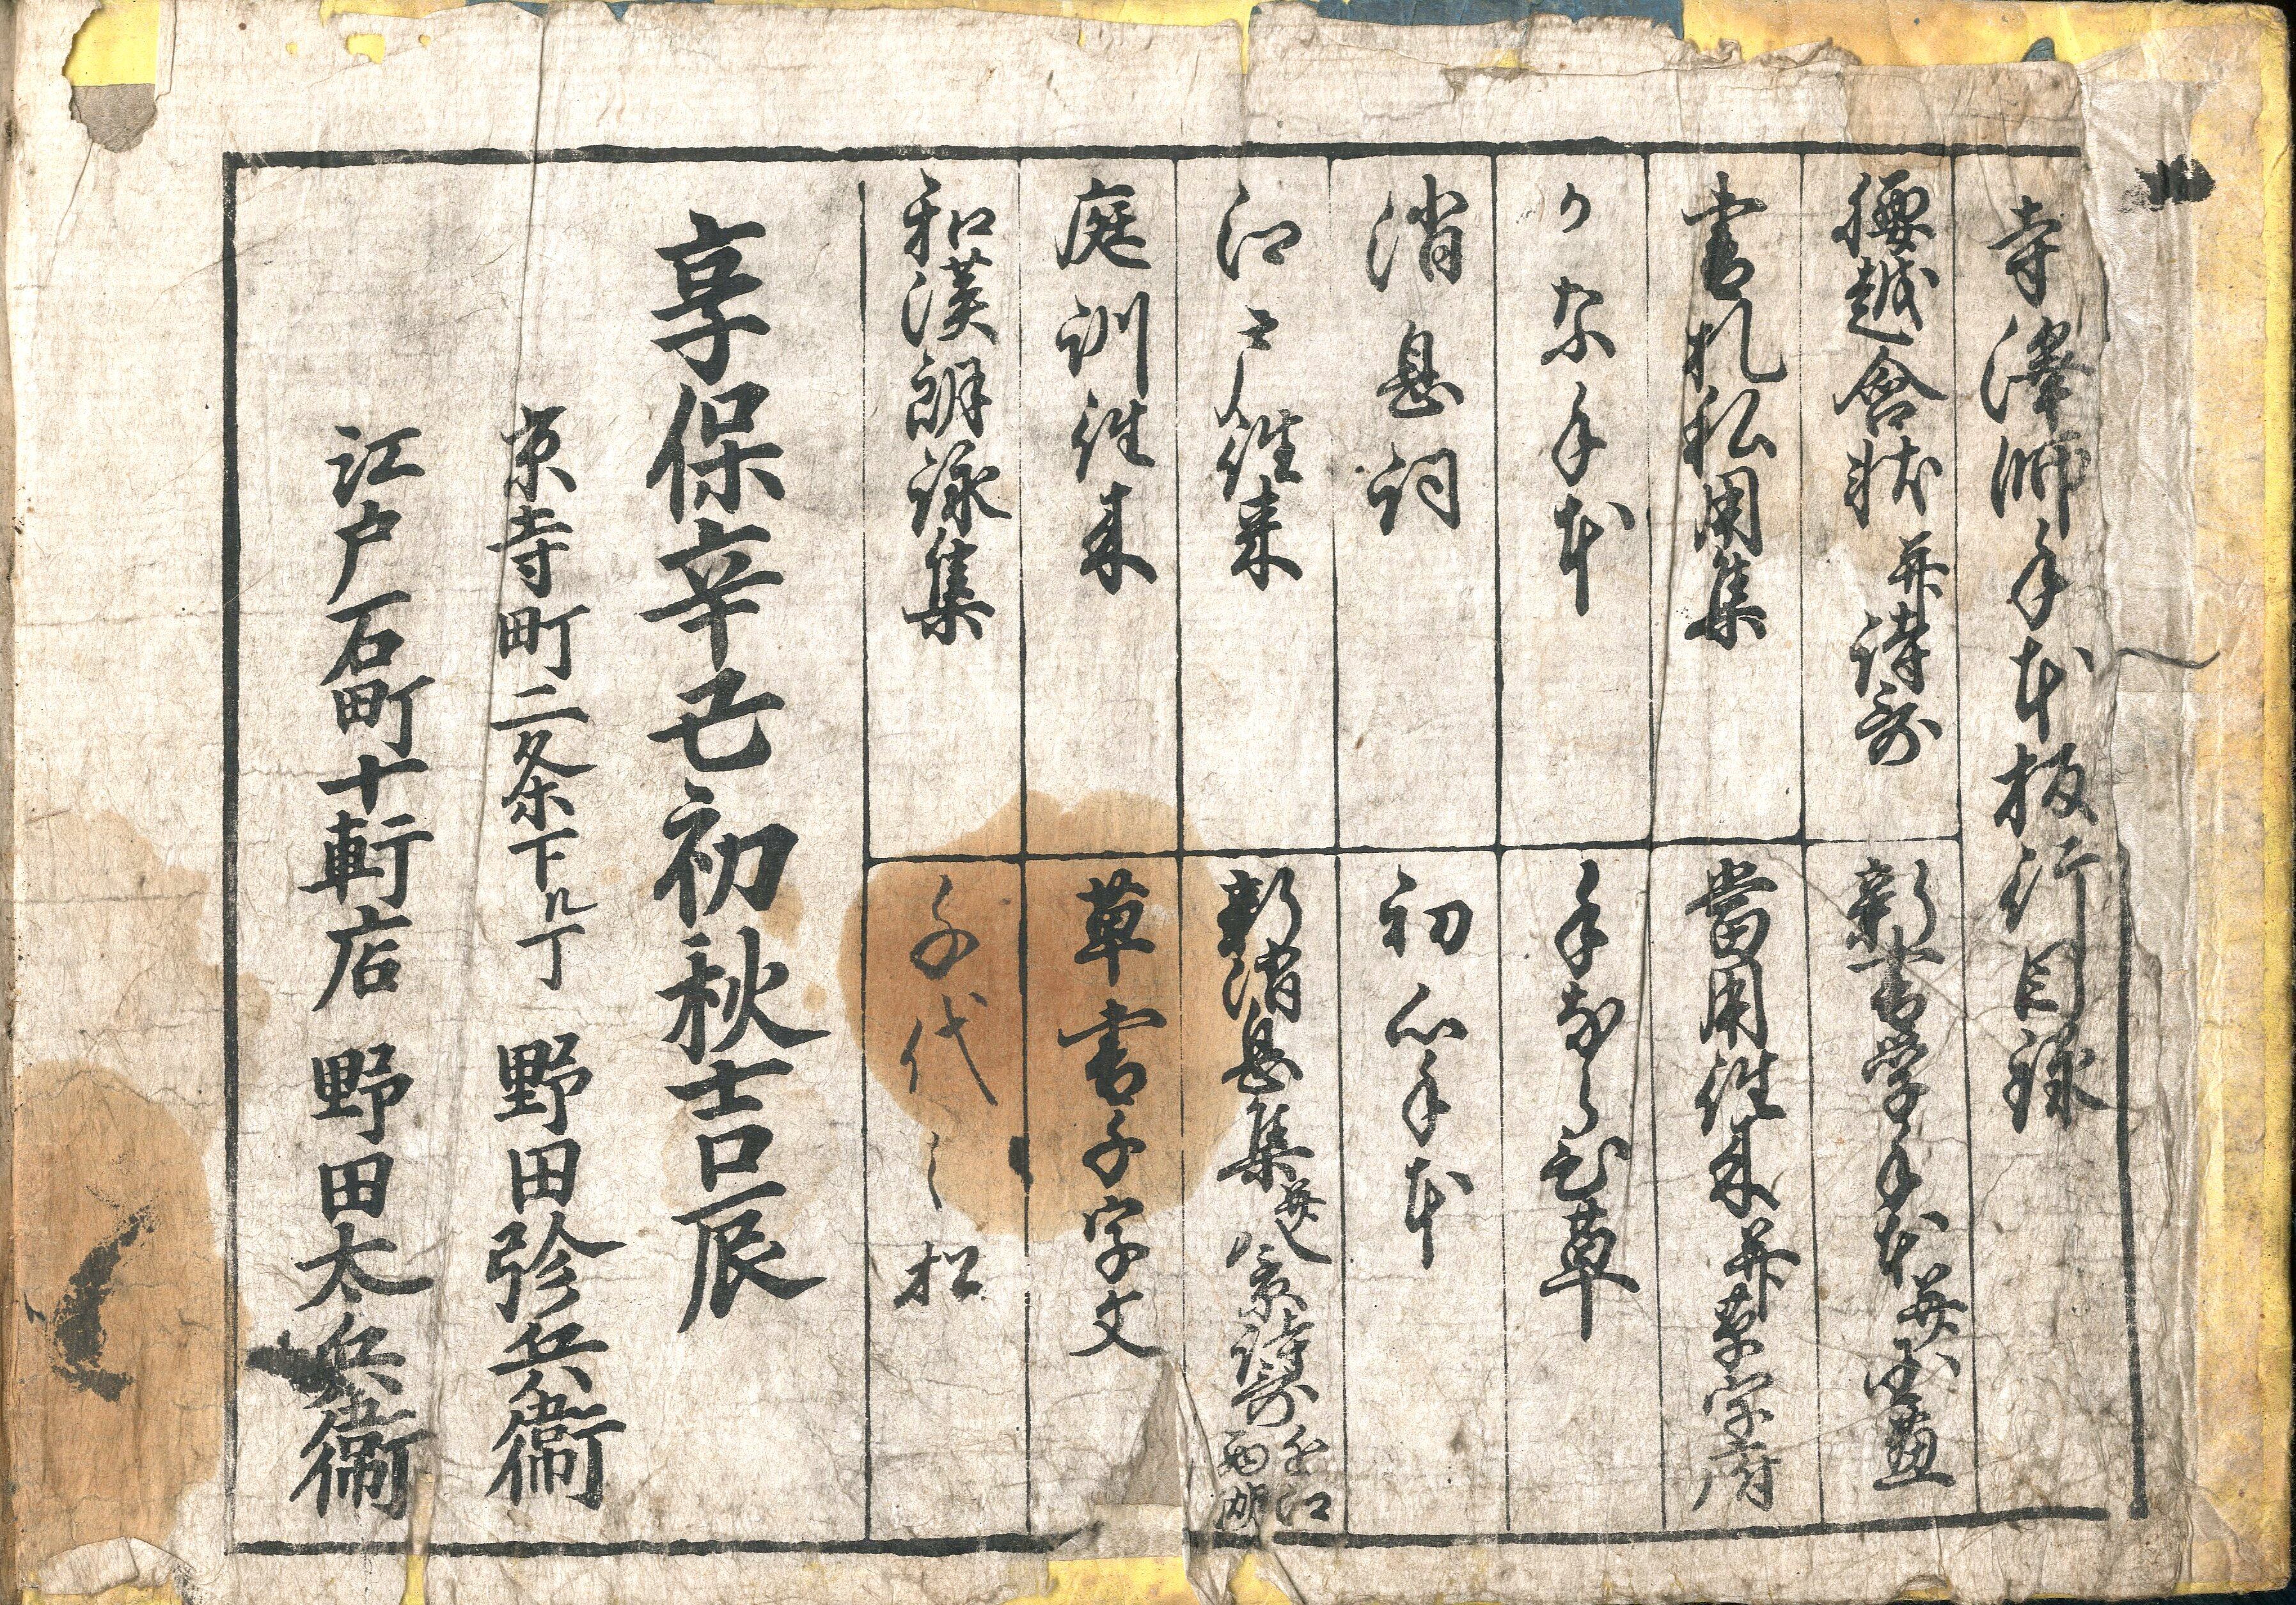 寺澤師手本板行目録
腰越含状 并詩哥
書札私用集
かな手本
消息詞
江戸往来
庭訓往来
和漢朗詠集
新書学手本 并
當用往来 并草字府
手ならひ草
初心手本
新消息集 并八景詩哥 近江 西湖
草書千字文
千代之松
享保辛丑初秋吉辰
京寺町二条下ル丁 野田弥兵衛
江戸石町十軒店 野田太兵衛